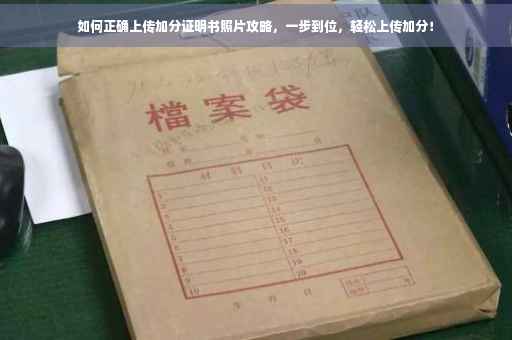 如何正确上传加分证明书照片攻略，一步到位，轻松上传加分！
檔案袋
材料目次
1 11
2 12
3 13
4 14
5 15
6 16
7 17
8 18
9 19
10 20
年 月 日